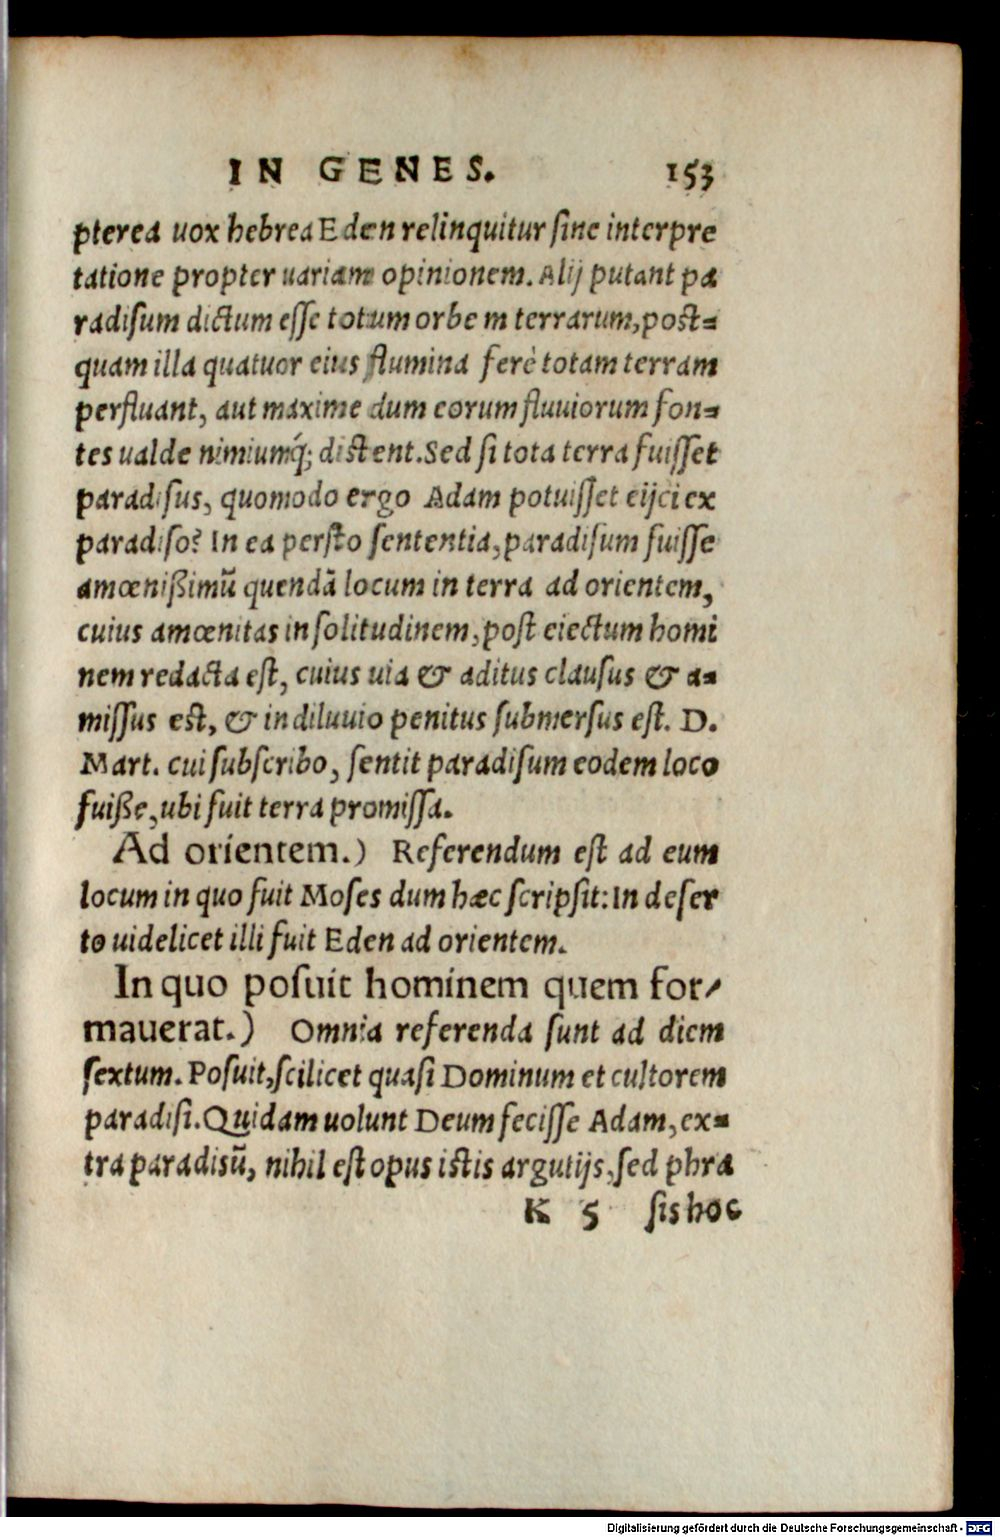 IN GENES. 153
pterea uox hebrea Eden relinquitur ſine interpre
tatione propter uariam opinionem. Alij putant pa
radiſum dictum eſſe totum orbem terrarum, poſt-
quam illa quatuor eius flumina ferè totam terram
perfluant, aut maxime dum eorum fluuiorum fon-
tes ualde nimiumq́; diſtent. Sed ſi tota terra fuiſſet
paradiſus, quomodo ergo Adam potuiſſet eijci ex
paradiſo? In ea perſto ſententia, paradiſum fuiſſe
amœnißimũ quendã locum in terra ad orientem,
cuius amœnitas in ſolitudinem, poſt eiectum homi
nem redacta eſt, cuius uia & aditus clauſus & a-
miſſus eſt, & in diluuio penitus ſubmerſus eſt. D.
Mart. cui ſubſcribo, ſentit paradiſum eodem loco
fuiße, ubi fuit terra promiſſa.
Ad orientem.) Referendum eſt ad eum
locum in quo fuit Moſes dum hæc ſcripſit: In deſer
to uidelicet illi fuit Eden ad orientem.
In quo poſuit hominem quem for-
mauerat.) Omnia referenda ſunt ad diem
ſextum. Poſuit, ſcilicet quaſi Dominum et cultorem
paradiſi. Quidam uolunt Deum feciſſe Adam, ex-
tra paradisũ, nihil eſt opus iſtis argutijs, ſed phra
K 5 ſis hoc
Digitalisierung gefördert durch die Deutsche Forschungsgemeinschaft - DFG